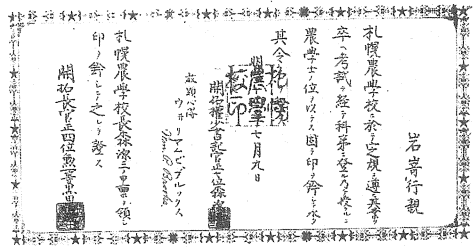 岩嵜行親
札幌農學校ニ於テ定規ヲ遵ヒ
卒ヘ考試ヲ経テ科第ニ登ル乃チ與フルニ
農學士ノ位ヲ以テス因テ印ヲ鈐シ
其令
札幌農學校印
七月九日
開拓権少書記官正七位森源
教頭心得
ウ井リアムピブルックス
Wm P. Brooks
札幌農學校長森源三甲票ヲ領シ
印ヲ鈐シテ之レヲ證ス
開拓長官正四位勲二等黒田